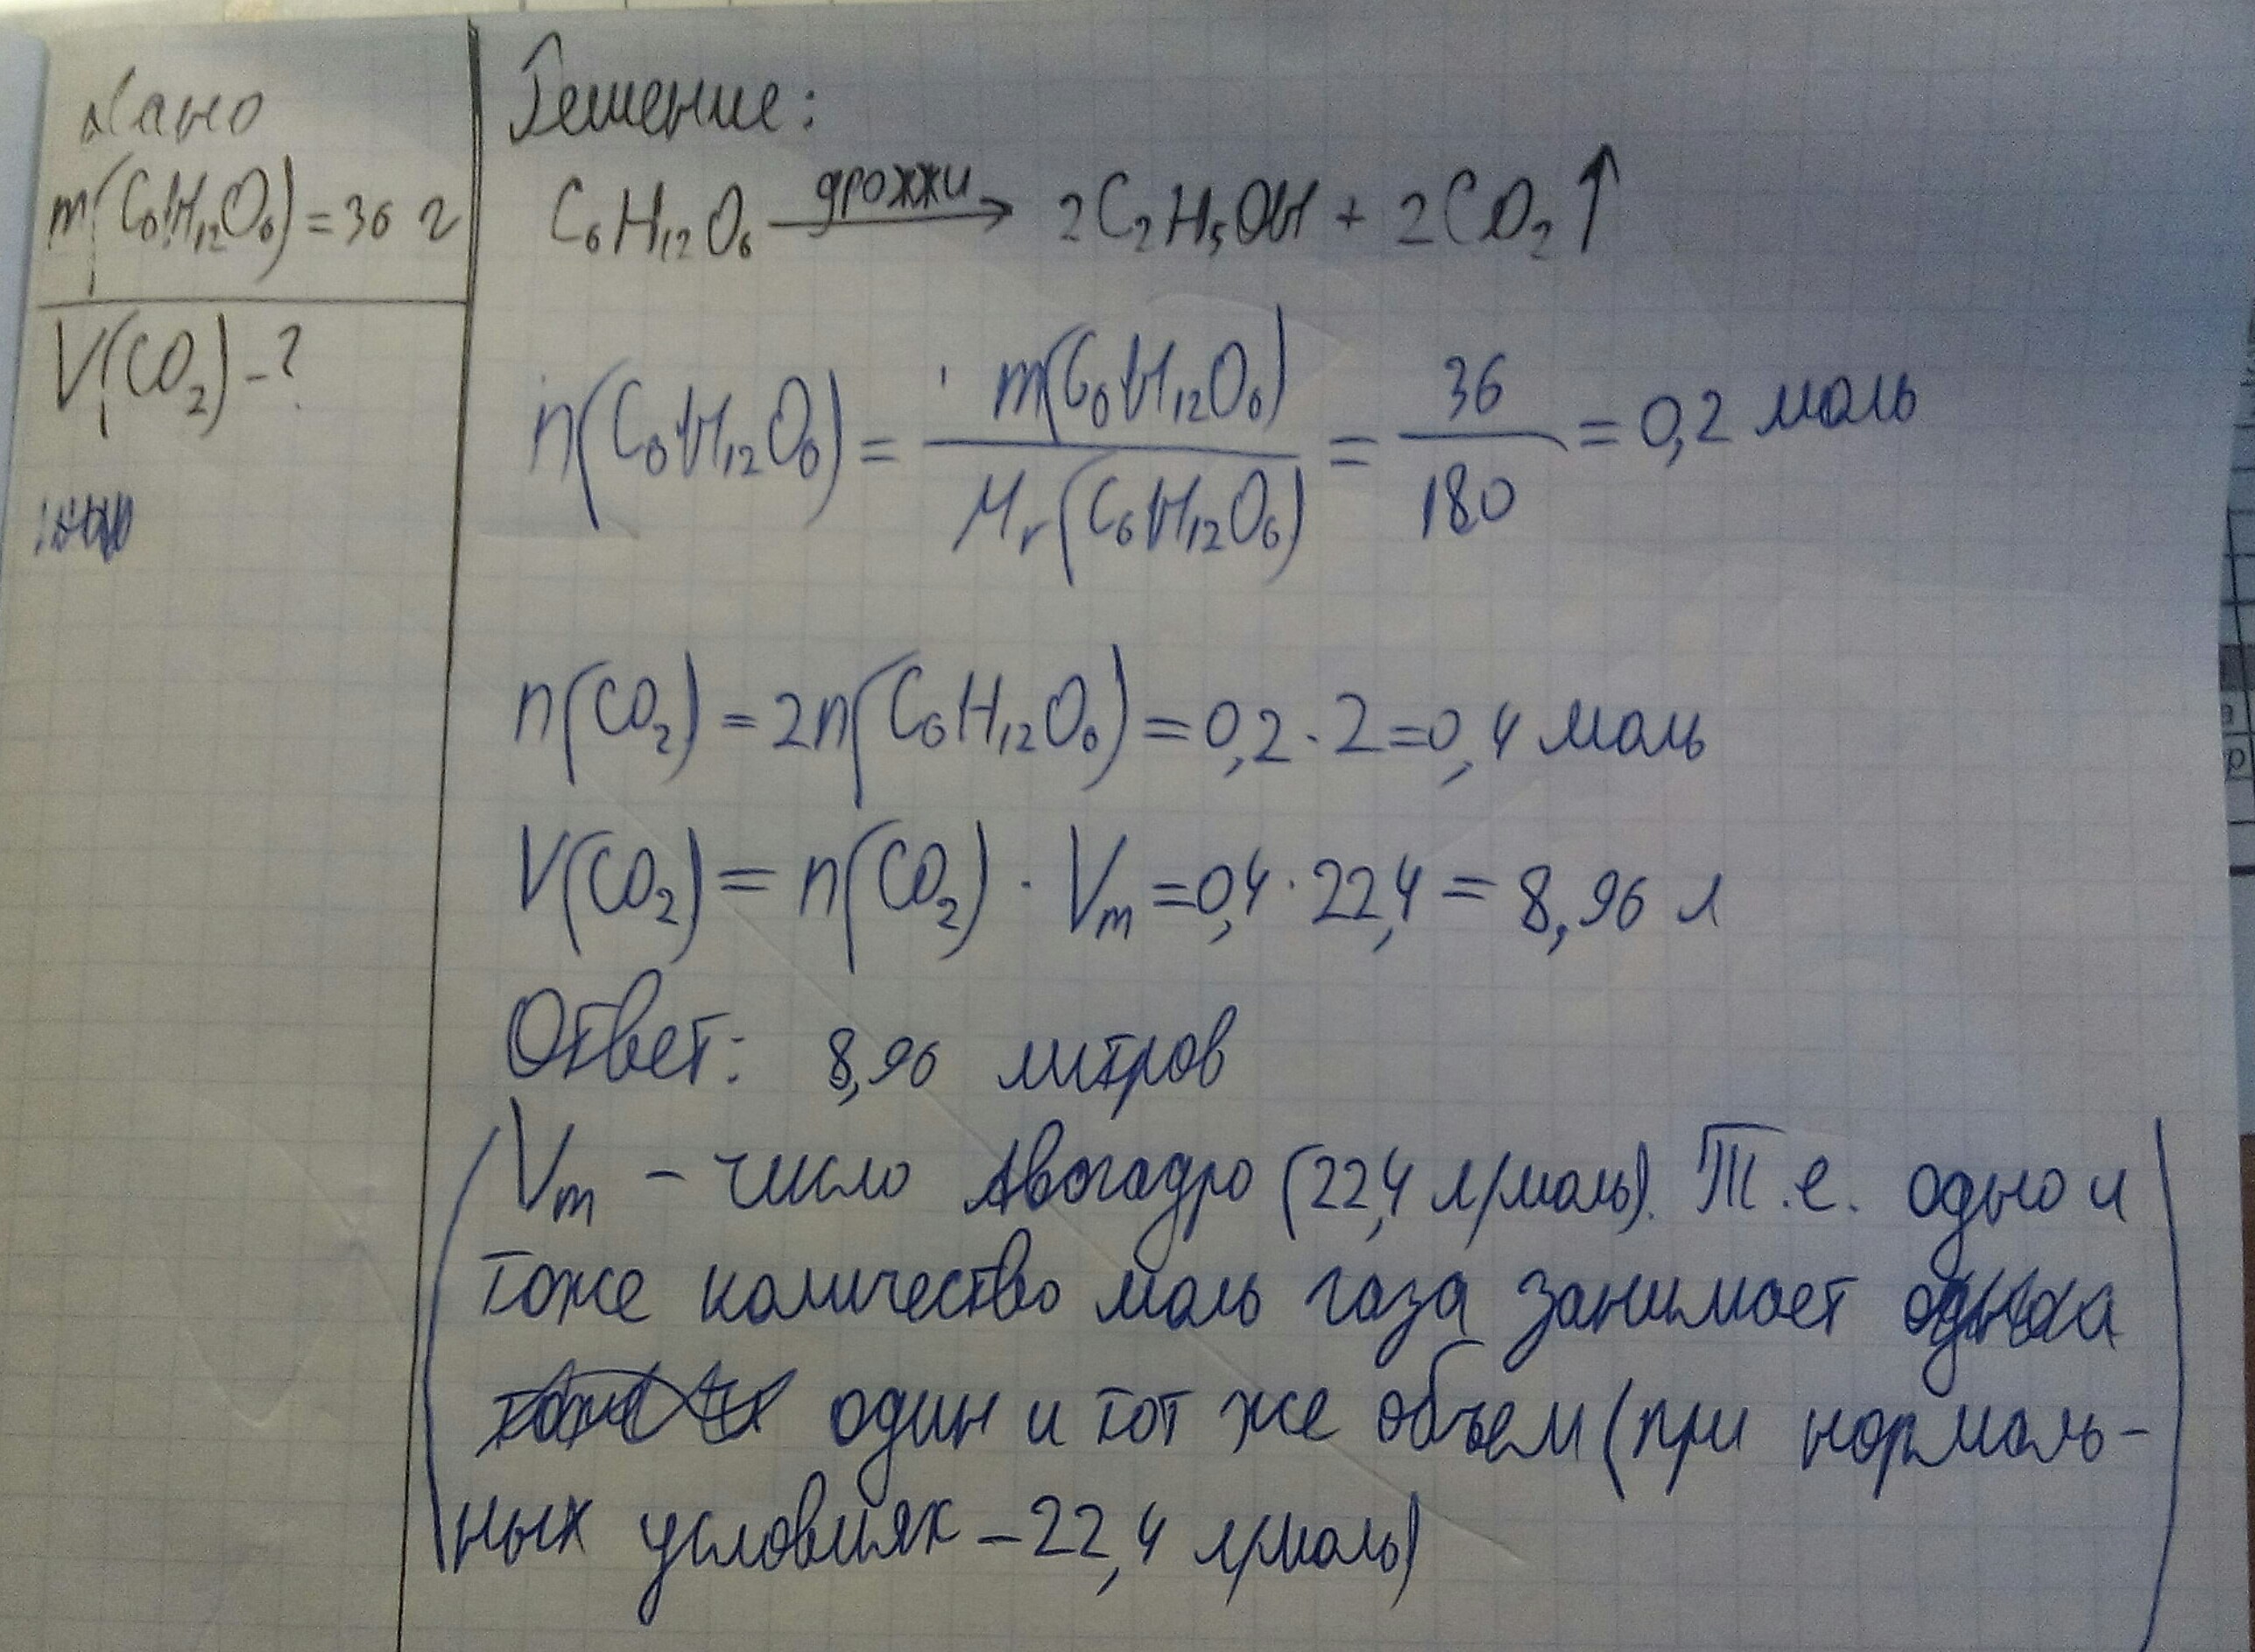 Дано
m(C₆H₁₂O₆) = 36 г
V(CO₂) - ?
Решение:
C₆H₁₂O₆ дрожжи → 2C₂H₅OH + 2CO₂↑
n(C₆H₁₂O₆) = m(C₆H₁₂O₆) / Mr(C₆H₁₂O₆) = 36 / 180 = 0,2 моль
n(CO₂) = 2n(C₆H₁₂O₆) = 0,2 · 2 = 0,4 моль
V(CO₂) = n(CO₂) · Vm = 0,4 · 22,4 = 8,96 л
Ответ: 8,96 литров
(Vm – число Авогадро (22,4 л/моль). Т.е. одно и
тоже количество моль газа занимает
один и тот же объем (при нормаль-
ных условиях – 22,4 л/моль)